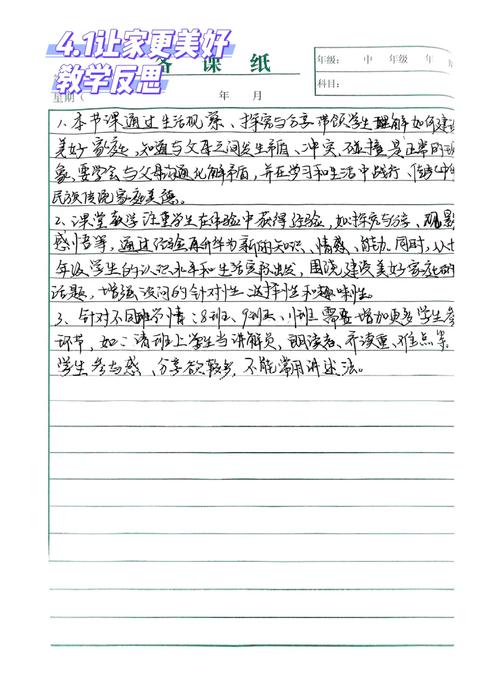 4.1让家更美好
教学反思
备课纸
年级: 中 年级 年
星期( 年 月
科目:
1.本节课通过生活观察、探究与分享带领学生理解如何建设
美好家庭,知道与父母之间发生矛盾、冲突、碰撞是正常的现
象,要学会与父母沟通化解矛盾,并在学习和生活中践行、传承中华
民族传统家庭美德。
2.课堂教学注重学生在体验中获得经验,如探究与分享、观影
感悟等,通过活动再升华为新的知识、情感、能力。同时,从七
年级学生的认识水平和生活实际出发,围绕建设美好家庭的
话题,增强设问的针对性、选择性和趣味性。
3、针对不同班学情:8班、9班、1班需要增加更多学生参
环节,如:请班上学生当讲解员、朗读者、齐读重、难点等。
学生参与感、分享欲较多,不能常用讲述法。